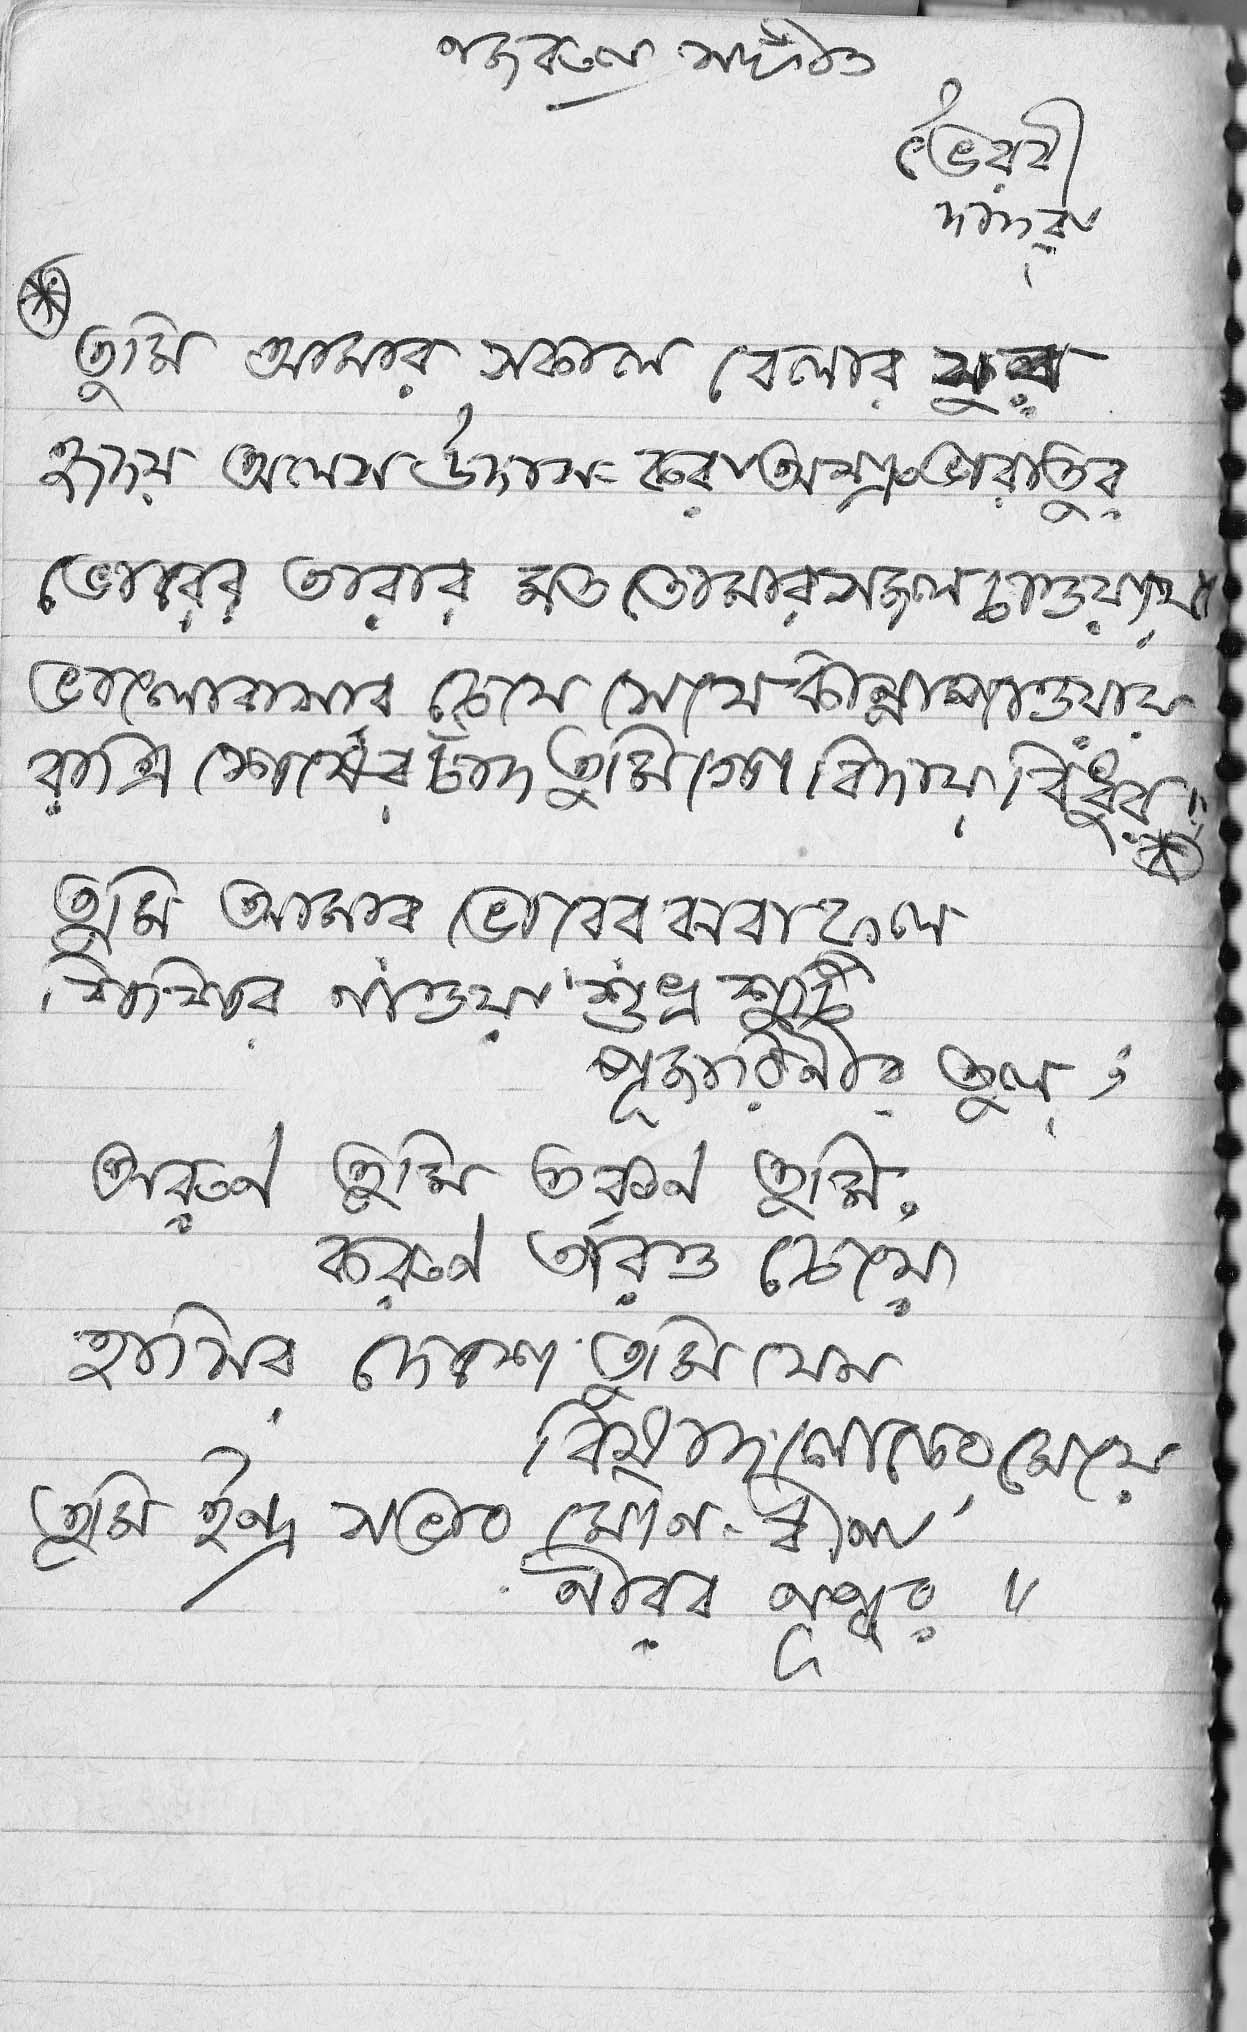 নজরুল সঙ্গীত
ভৈরবী
দাদরা
তুমি আমার সকাল বেলার সুর
হৃদয় অলস উদাস করা অশ্রু ভারাতুর
ভোরের তারার মত তোমার সজল চাওয়ায়
ভালোবাসার চেয়ে সেযে কান্না পাওয়ায়
রাত্রি শেষের চাঁদ তুমি গো বিদায় বিধুর॥
তুমি আমার ভোরের ঝরা ফুল
শিশিরে নাওয়া শুভ্র শুচি
পূজারিনীর তুল,
অরুন তুমি তরুন তুমি,
করুন তারও চেয়ে
হাসির দেশে তুমি যেন
বিষাদ লোকের মেয়ে
তুমি ইন্দ্র সভার মৌন-বীনা
নীরব নূপুর ॥